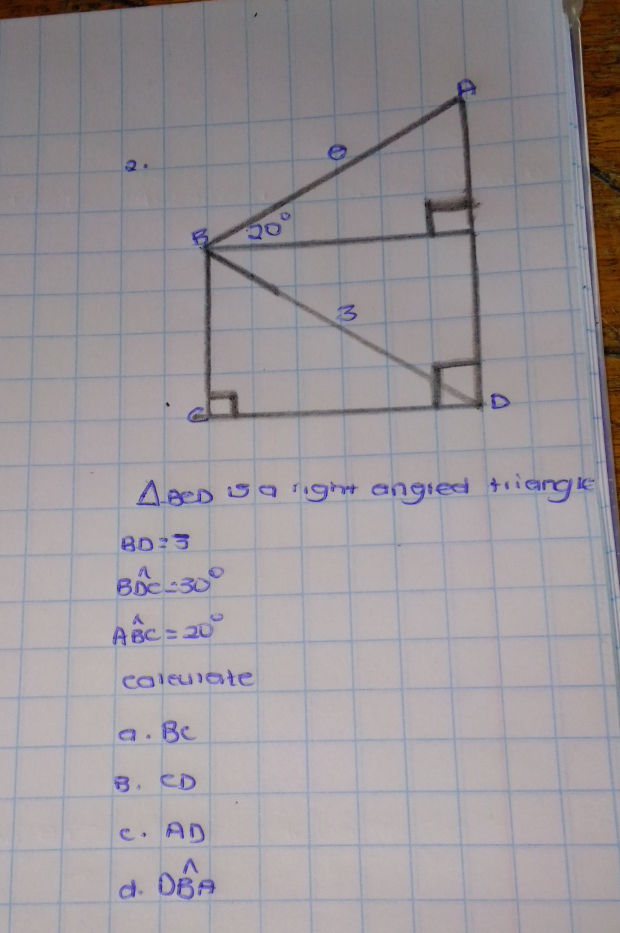 A
θ
2.
B
20°
3
C
D
△BCD is a right angled triangle
BD=3
BD̂C=30°
AB̂C=20°
calculate
a. BC
B. CD
c. AD
d. DB̂A